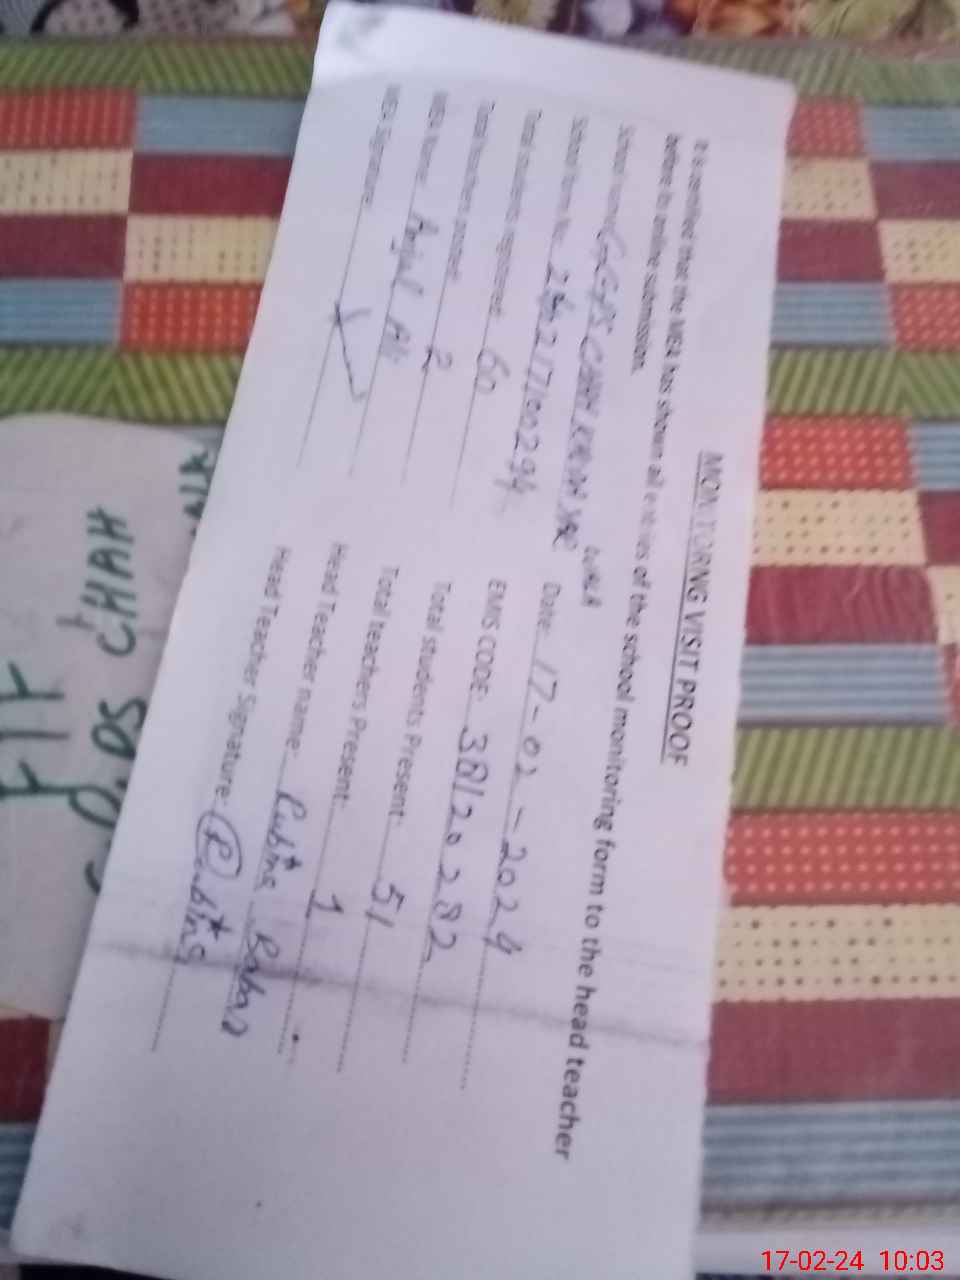 MONITORING VISIT PROOF
It is certified that the MEA has shown all entries of the school monitoring form to the head teacher
before its online submission.
School name: GGPS CHAH
Date: 17-02-2024
EMIS CODE: 38120282
Total students registered: 60 Total students Present: 51
Total teachers posted: 2 Total teachers Present: 1
MEA Name: Head Teacher name: Rubina
MEA Signature: Head Teacher Signature: Rubina
CHAH
17-02-24 10:03